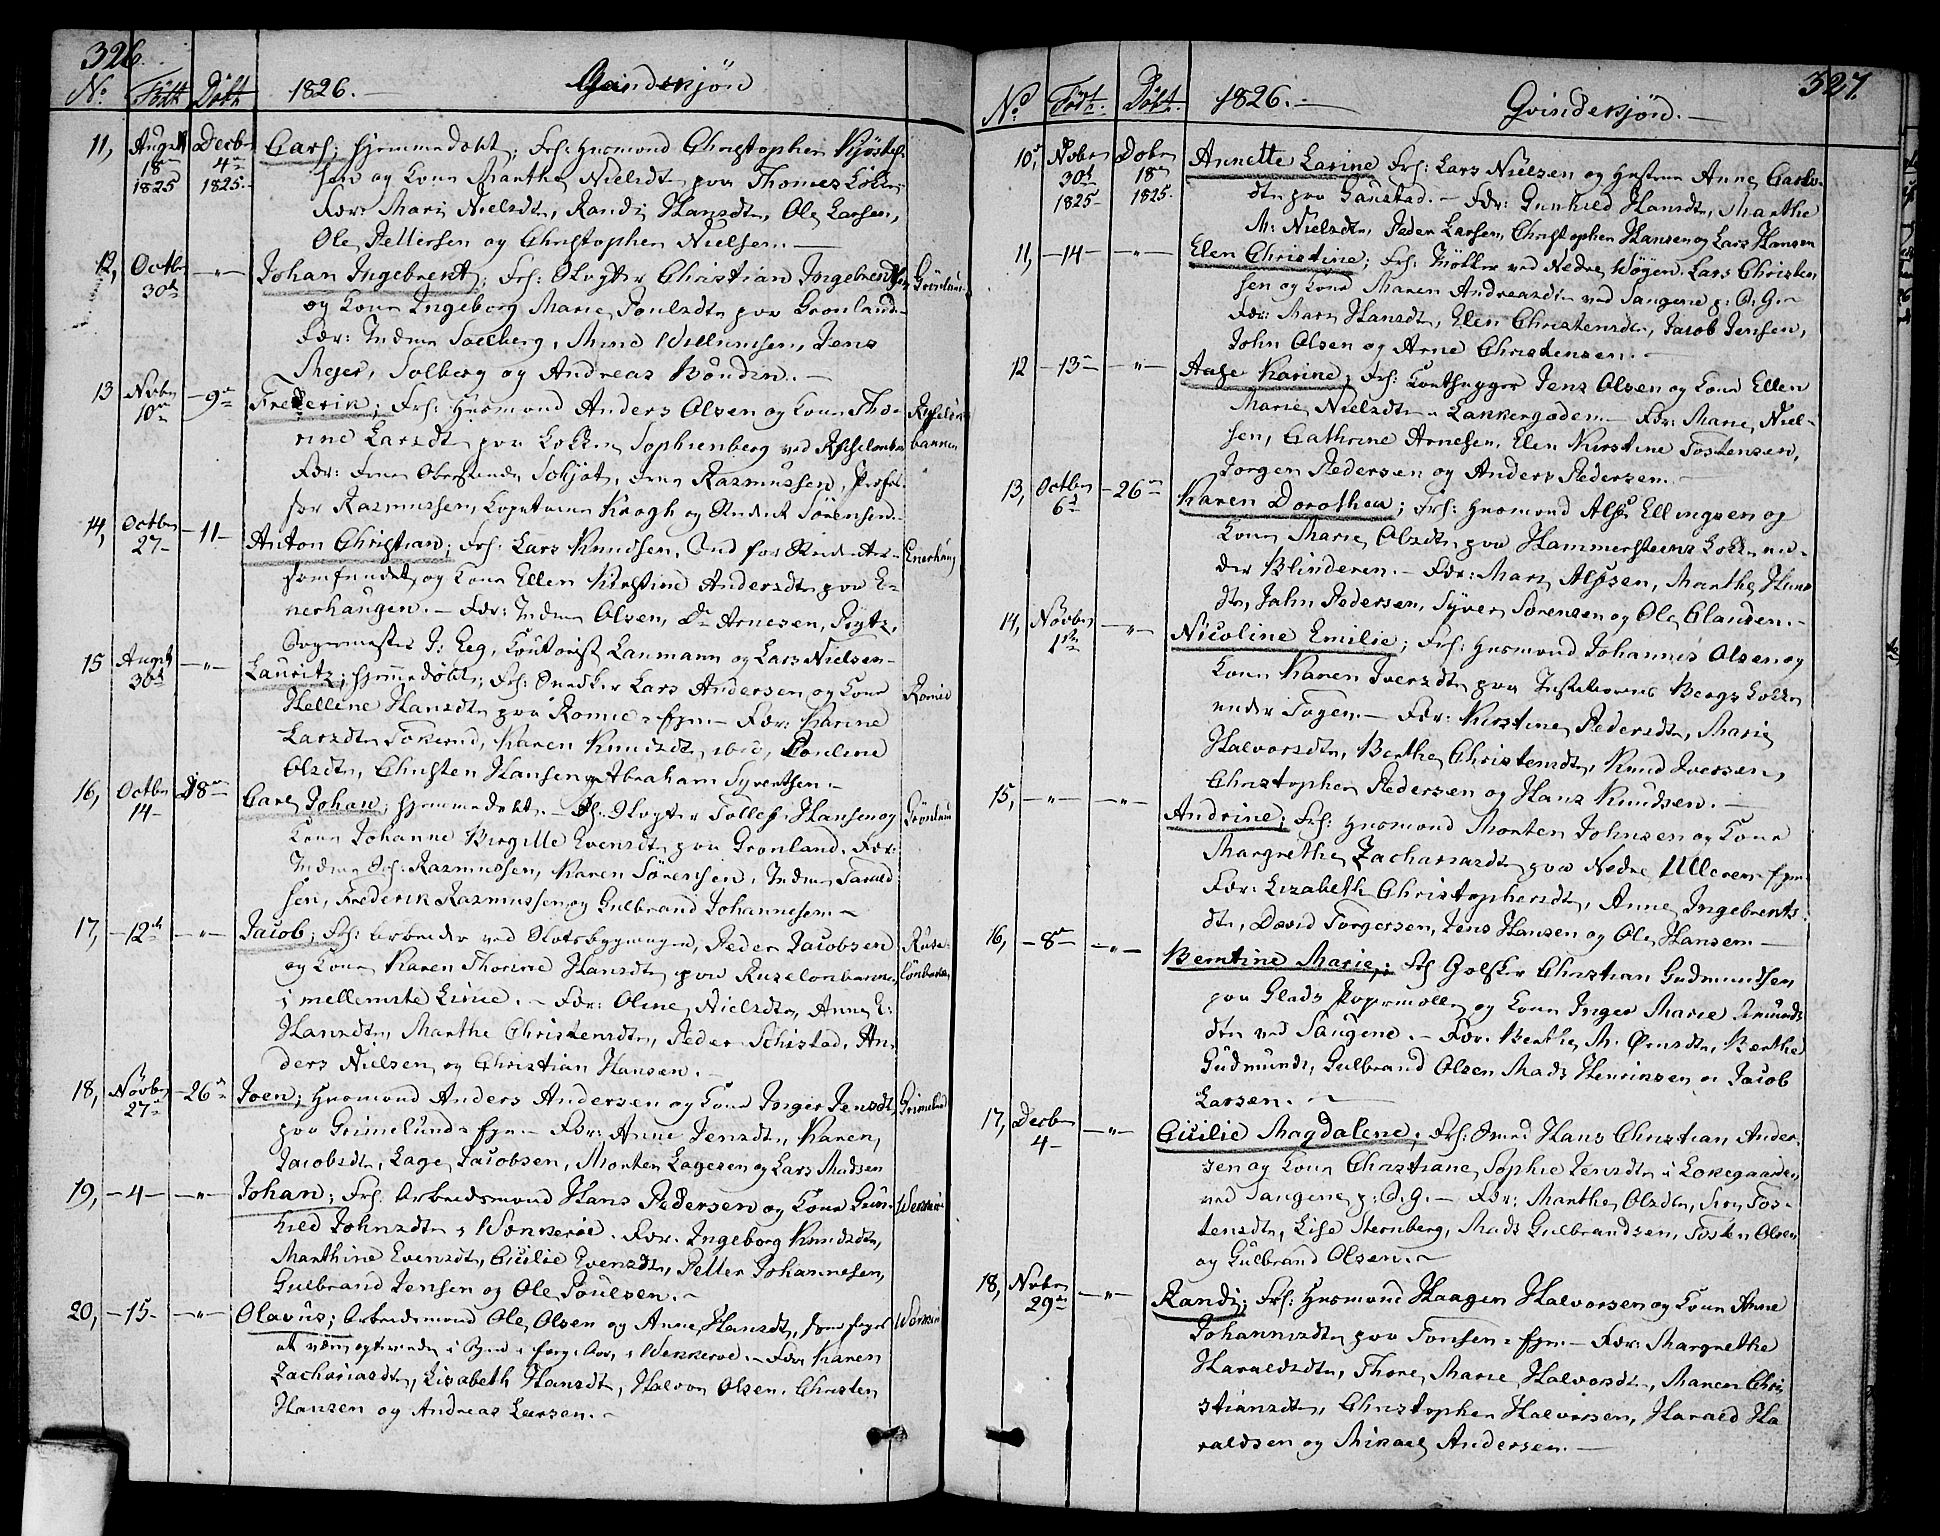 326.
No. Födt Döbt 1826. Qvindekjön
11, Augst 18de 1825 Decbr 4de 1825. Carl; hjemmedøbt; Frs: Huusmand Christopher Kjöstel-
sen og Kone Marthe Nielsdtr paa Thomesløkken
Fær: Mari Nielsdtr, Randi Hansdtr, Ole Larsen,
Ole Pettersen og Christopher Nielsen.
12, Octbr 30te Johan Ingebregt; Frs: Slagter Christian Ingebregtsen Grönland
og Kone Ingeborg Marie Poulsdtr paa Grönland
Fær: Indmr Solberg, Mine Willumsen, Jens
Mejer, Solberg og Andreas Bonden.
13 Novbr 10de - 9de Frederik; Frs: Huusmand Anders Olsen og Kone Tho-
rine Larsdtr paa Løkken Sophienberg ved
Fær: Rasmussen, Profes-
sor Rasmussen, Capitaine Krogh og Sörensen.
14, Octbr 27 - 11 Anton Christian; Frs: Lars Knudsen, Bud for Enerhaug
og Kone Ellen Kirstine Andersdtr paa E-
nerhaugen. Fær: Indmr Olsen, Do Arnesen, Pÿtz,
J: Eeg, Contorist Laumann og Lars Nielsen
15 Augst 30te Lauritz; hjemmedøbt; Frs: Snedker Lars Andersen og Kone Romie
Hellene Hansdtr paa Romie Fær: Karine
Larsdtr, Karen Knudsdtr ibid, Pouline
Olsdtr, Christen Hansen og Abraham Syvertsen
16, Octbr 14 - 18de Carl Johan; hjemmedøbt. Frs: Slagter Tollef Hansen og Grönland
Kone Johanne Birgitte Evensdtr paa Grönland. Fær:
Rasmussen, Karen Sörensen,
sen, Frederik Rasmussen og Gulbrand Johannesen
17, - 12te Jacob; Frs: Arbeider ved Slotsbygningen, Peder Jacobsen
og Kone Karen Thorine Hansdtr paa Ruseløkbakken
i mellemste Linie. Fær: Oline Nielsdtr, Anne E:
Hansdtr, Marthe Christensdtr, Peder Schistad, An-
ders Nielsen og Christian Hansen.
18, Novbr 27 - 26de Joen; Huusmand Anders Andersen og Kone Inger Jensdtr Grimelund
paa Grimelund Fær: Anne Jensdtr, Karen
Jacobsdtr, Lage Jacobsen, Morten Lagesen og Lars Madsen
19, - 4 Johan; Frs. Arbeidsmand Hans Pedersen og Kone Gun-
hild Johnsdtr i Wækkeröe. Fær. Ingeborg Knudsdtr,
Marthine Evensdtr, Cicilie Evensdtr, Petter Johannesen,
Gulbrand Jensen og Ole Poulsen.
20, - 15 Olavus; Arbeidsmand Ole Olsen og Anne Hansdtr,
Wekkeröe. Fær. Karen
Zachariasdtr, Lisabeth Hansdtr, Halvor Olsen, Christen
Hansen og Andreas Larsen.
327.
No. Födt. Döbt. 1826. Qvindekjön.
10, Novbr 30te 1825 Dcbr 18de 1825. Annette Larine Frs: Lars Nielsen og Hustrue Anne Carls-
dtr paa Gaustad. Fær: Gunhild Hansdtr, Marthe
M: Nielsdtr, Peder Larsen, Christopher Hansen og Lars Hansen
11, - 14 Elen Christine; Frs: Möller ved Nedre Wøyen, Lars Christen-
sen og Kone Maren Andreasdtr ved Saugene p: O: G:
Fær: Mari Hansdtr, Elen Christensdtr, Jacob Jensen,
John Olsen og Arne Christensen.
12 - 13 Aase Karine; Frs: Jens Olsen og Kone Ellen
Marie Nielsdtr Lakkegaden. Fær: Marie Niel-
sen, Cathrine Arnesen, Elen Kirstine Tostensen,
Jorgen Pedersen og Anders Pedersen.
13, Octbr 6te - 26de Karen Dorothea; Frs: Huusmand Alf Ellingsen og
Kone Marie Olsdtr paa Hammersteens Løkken un-
der Blinderen. Fær: Mari Alfsen, Marthe Hans
dtr, John Pedersen, Syver Sørensen og Ole Clausen.
14, Novbr 1ste Nicoline Emilie; Frs: Huusmand Johannes Olsen og
Kone Karen Iversdtr paa Bergs Løkke
under Tøyen. Fær: Kirstine Pedersdtr, Marie
Halvorsdtr, Berthe Christensdtr, Knud Iversen,
Christopher Pedersen og Hans Knudsen.
15, Andrine; Frs: Huusmand Morten Johnsen og Kone
Margrethe Zachariasdtr paa Nedre Ulleren
Fær: Lizabeth Christophersdtr, Anne Ingebrets-
dtr, David Torgersen, Jens Hansen og Ole Hansen.
16, - 8de Berntine Marie; Frs Christian Gudmundsen
paa Glads Papirmølle og Kone Inger Marie Amunds
dtr ved Saugene. Fær. Berthe M. Örnsdtr, Berthe
Gudmunds, Gulbrand Olsen Mads Henriksen og Jacob
Larsen.
17, Decbr 4 Cicilie Magdalene; Frs: Smed Hans Christian Ander-
sen og Kone Christiane Sophie Jensdtr i Løkegaarden
ved Saugene p: O. G. Fær: Marthe Olsdtr, Siri Tos-
tensdtr, Lise Sternberg, Mads Gulbrandsen, Tosten Olsen
og Gulbrand Olsen.
18, Novbr 29de Randi; Frs: Huusmand Haagen Halvorsen og Kone Anne
Johannisdtr paa Tonsen Fær: Margrethe
Haraldsdtr, Thore Marie Halvorsdtr, Maren Chri
stiansdtr, Christopher Halvorsen, Harald Ha
raldsen og Mikael Andersen.